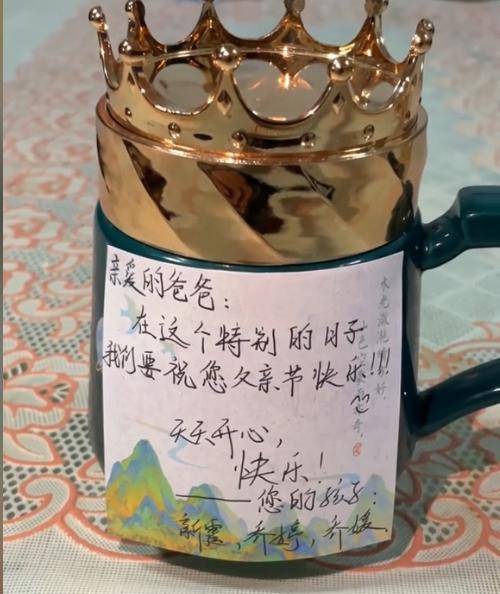 亲爱的爸爸：
在这个特别的日子
我们要祝您父亲节快乐!!!
天天开心，
快乐！
——您的孩子：
新霞，乔婷，乔媛.
水光潋滟
好，
奇。